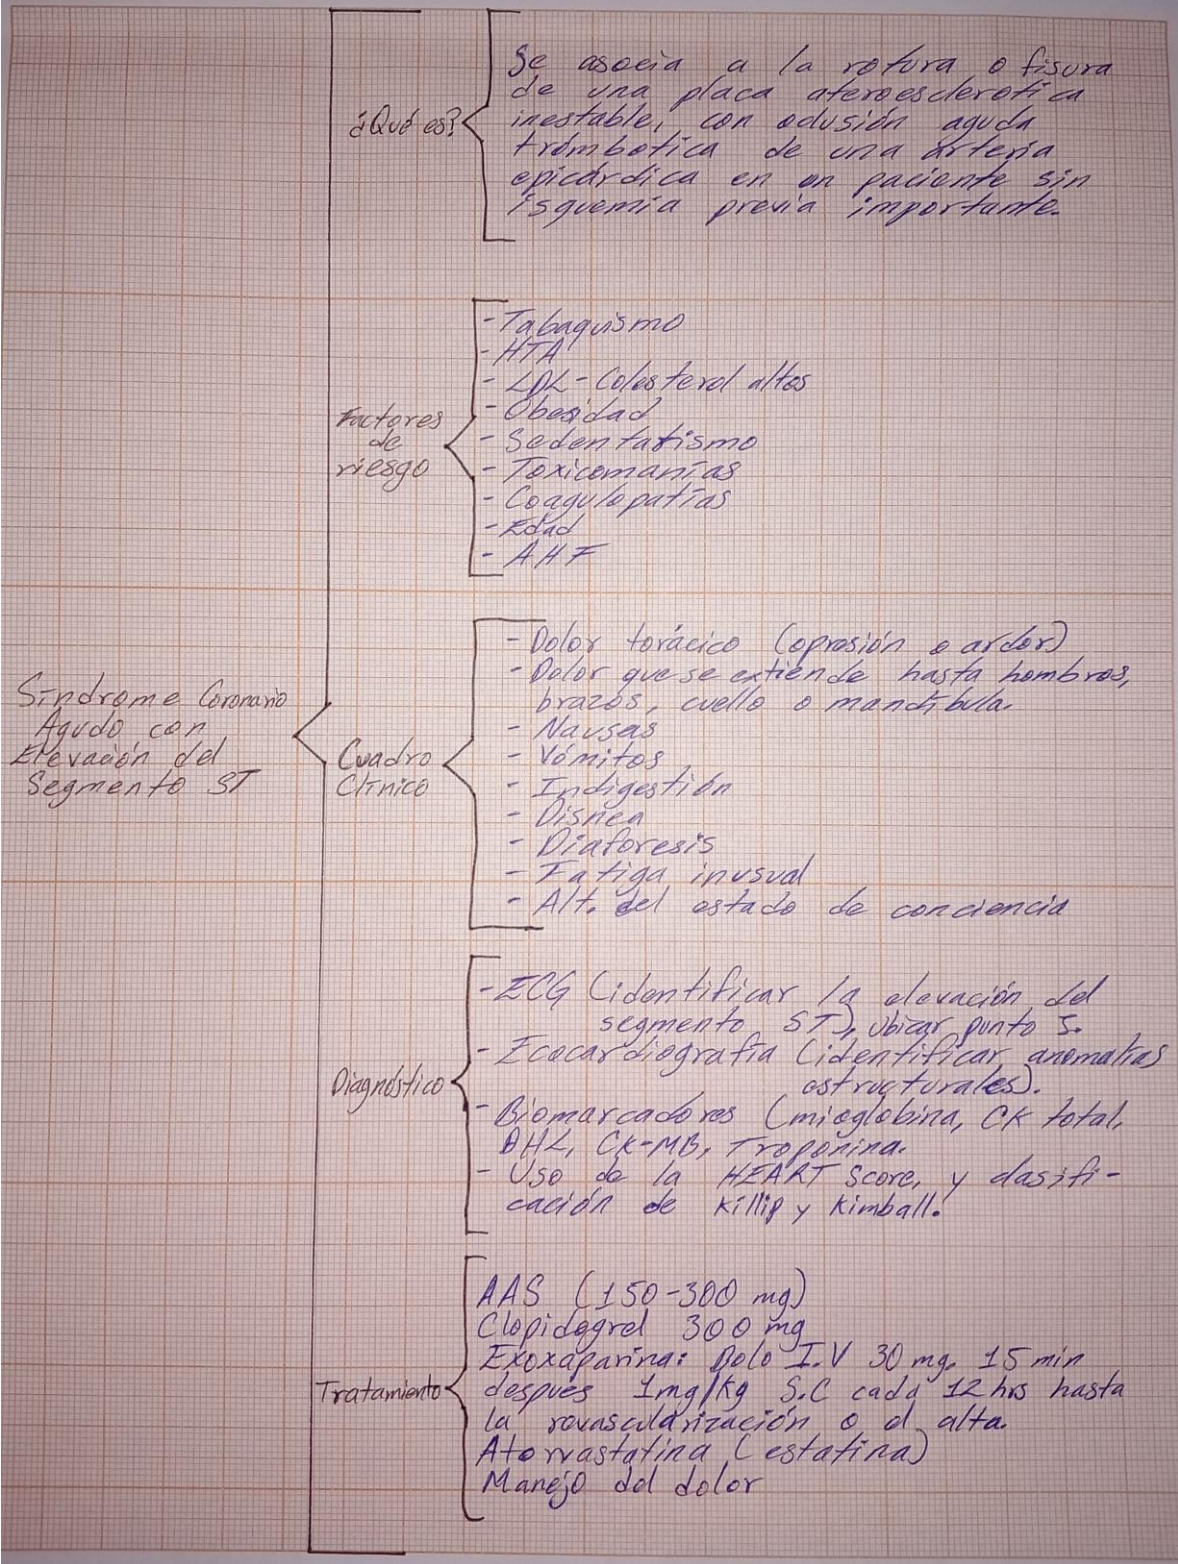 Síndrome Coronario
Agudo con
Elevación del
Segmento ST
¿Qué es?
Se asocia a la rotura o fisura
de una placa ateroesclerotica
inestable, con oclusión aguda
trombotica de una arteria
epicárdica en un paciente sin
isquemia previa importante.
Factores
de
riesgo
- Tabaquismo
- HTA
- LDL - Colesterol altos
- Obesidad
- Sedentatismo
- Toxicomanías
- Coagulopatías
- Edad
- AHF
Cuadro
Clínico
- Dolor torácico (opresión o ardor)
- Dolor que se extiende hasta hombros,
brazos, cuello o mandíbula.
- Nauseas
- Vómitos
- Indigestión
- Disnea
- Diaforesis
- Fatiga inusual
- Alt. del estado de conciencia
Diagnóstico
- ECG (identificar la elevación del
segmento ST), ubicar punto J.
- Ecocardiografía (identificar anomalías
estructurales).
- Biomarcadores (mioglobina, CK total,
DHL, CK-MB, Troponina.
- Uso de la HEART Score, y clasifi-
cación de Killip y Kimball.
Tratamiento
AAS (150-300 mg)
Clopidogrel 300 mg
Exoxaparina: Bolo I.V 30 mg. 15 min
despues 1mg/kg S.C cada 12 hrs hasta
la revascularización o el alta.
Atorvastatina (estatina)
Manejo del dolor